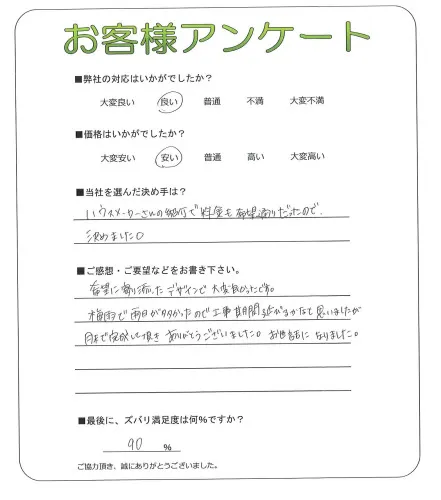 お客様アンケート
■弊社の対応はいかがでしたか？
大変良い 良い 普通 不満 大変不満
■価格はいかがでしたか？
大変安い 安い 普通 高い 大変高い
■当社を選んだ決め手は？
ハウスメーカーさんの紹介で料金も希望通りだったので、
決めました。
■ご感想・ご要望などをお書き下さい。
希望に寄り添ったデザインで大変良かったです。
梅雨で雨日が多かったので工事期間延びるかなと思いましたが
まで完成して頂きありがとうございました。お世話になりました。
■最後に、ズバリ満足度は何％ですか？
90 %
ご協力頂き、誠にありがとうございました。